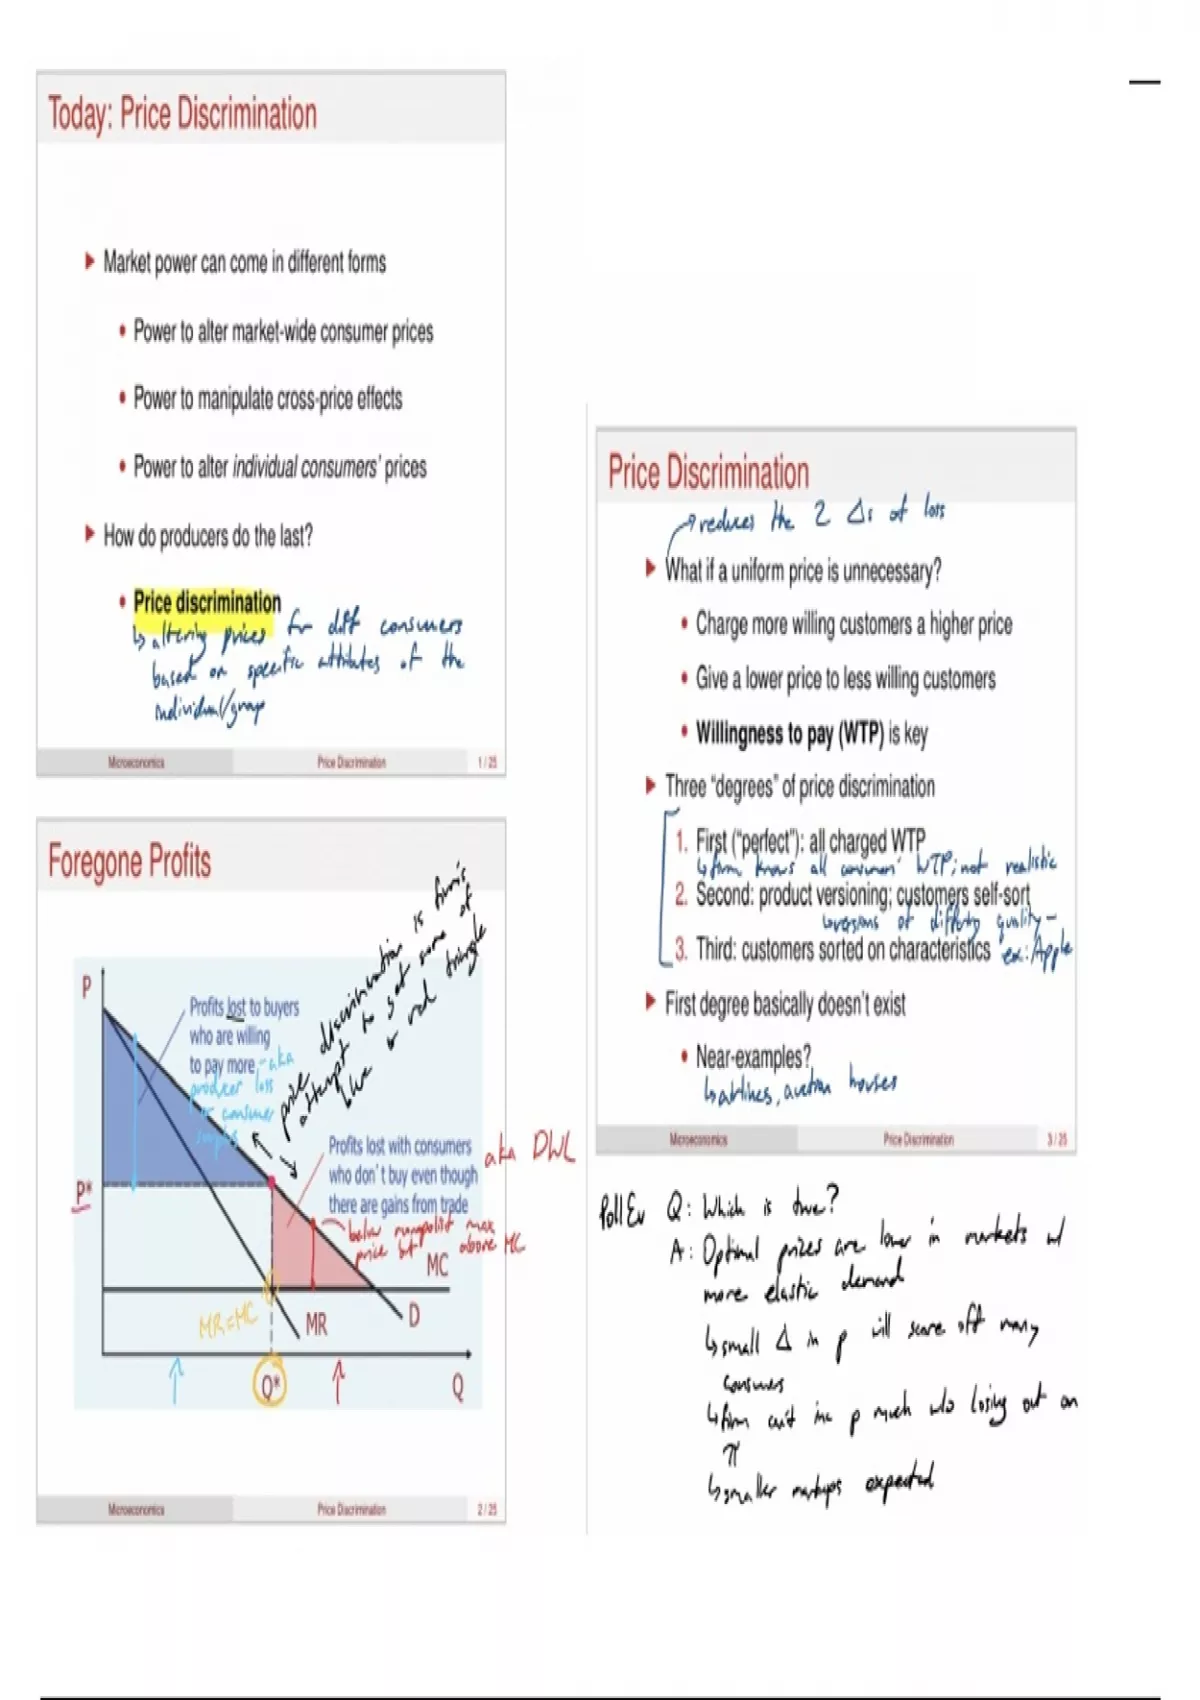 Today: Price Discrimination
Market power can come in different forms
Power to alter market-wide consumer prices
Power to manipulate cross-price effects
Power to alter individual consumers' prices
How do producers do the last?
Price discrimination
↳ altering prices for diff consumers
based on specific attributes of the
individual/group
Microeconomics Price Discrimination 1 / 25
Foregone Profits
price discrimination is firm's
attempt to get some of
blue + red triangle
P
Profits lost to buyers
who are willing
to pay more - aka
producer loss
consumer
surplus
Profits lost with consumers
who don't buy even though
there are gains from trade
aka DWL
below monopolist max
price but above MC
P*
MC
MR=MC
MR
D
Q*
Q
Microeconomics Price Discrimination 2 / 25
Price Discrimination
reduces the 2 Δs of loss
What if a uniform price is unnecessary?
Charge more willing customers a higher price
Give a lower price to less willing customers
Willingness to pay (WTP) is key
Three “degrees” of price discrimination
1. First (“perfect”): all charged WTP
↳ firm knows all consumers' WTP; not realistic
2. Second: product versioning; customers self-sort
↳ versions of differing quality -
3. Third: customers sorted on characteristics ex: Apple
First degree basically doesn't exist
Near-examples?
↳ airlines, auction houses
Microeconomics Price Discrimination 3 / 25
PollEv Q: Which is true?
A: Optimal prices are lower in markets w/
more elastic demand
↳ small Δ in p will scare off many
consumers
↳ firm can't inc p much w/o losing out on
π
↳ smaller markups expected